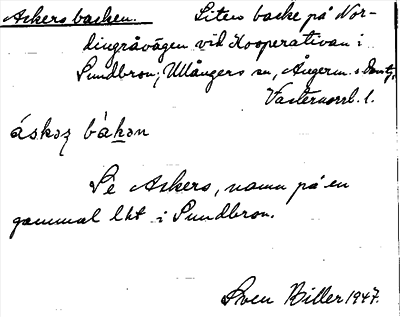 Askersbacken. Liten backe på Nor-
dingråvägen vid Kooperativan i
Sundbron, Ullångers sn, Ångerm.
Västernorrl. l.
áskəʂ bákən
Se Askers, namn på en
gammal lht i Sundbron.
Sven Biller 1947.